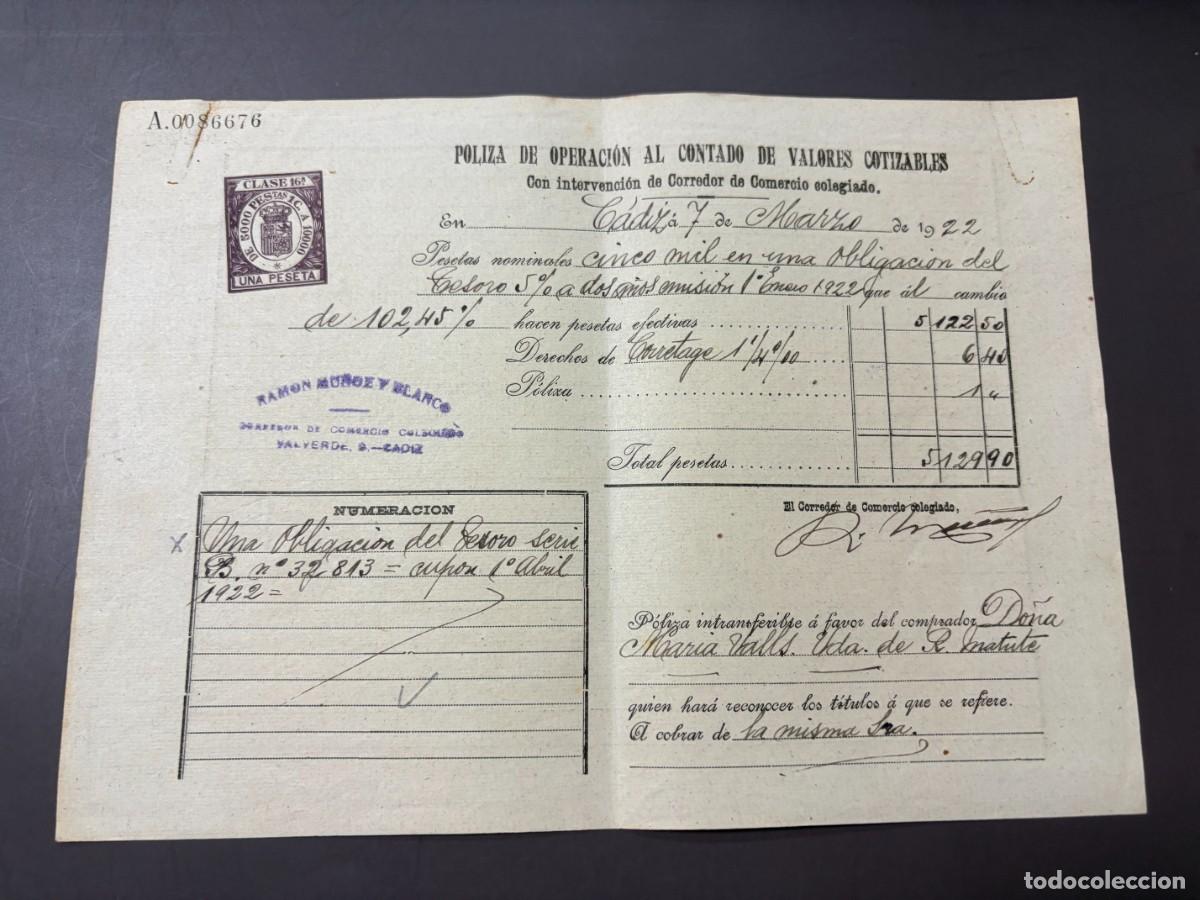 A.0086676
POLIZA DE OPERACIÓN AL CONTADO DE VALORES COTIZABLES
Con intervención de Corredor de Comercio colegiado.
CLASE 16ª
DE 5000 PESTAS 1C. A 10000
UNA PESETA
En Cádiz á 7 de Marzo de 1922
Pesetas nominales cinco mil en una Obligacion del
Tesoro 5% a dos años emisión 1º Enero 1922 que ál cambio
de 102,45% hacen pesetas efectivas 5 122 50
Derechos de Corretage 1 1/4 º/00 6 40
Póliza 1 "
Total pesetas 5 129 90
RAMON MUÑOZ Y BLANCO
CORREDOR DE COMERCIO COLEGIADO
VALVERDE, 9.-CADIZ
NUMERACION
X Una Obligacion del Tesoro serie
B. nº 32 813 = cupon 1º Abril
1922 =
El Corredor de Comercio colegiado,
R. Muñoz
Póliza intransferible á favor del comprador Doña
Maria Valls. Vda. de R. Matute
quien hará reconocer los títulos á que se refiere.
A cobrar de la misma Sra.
todocoleccion